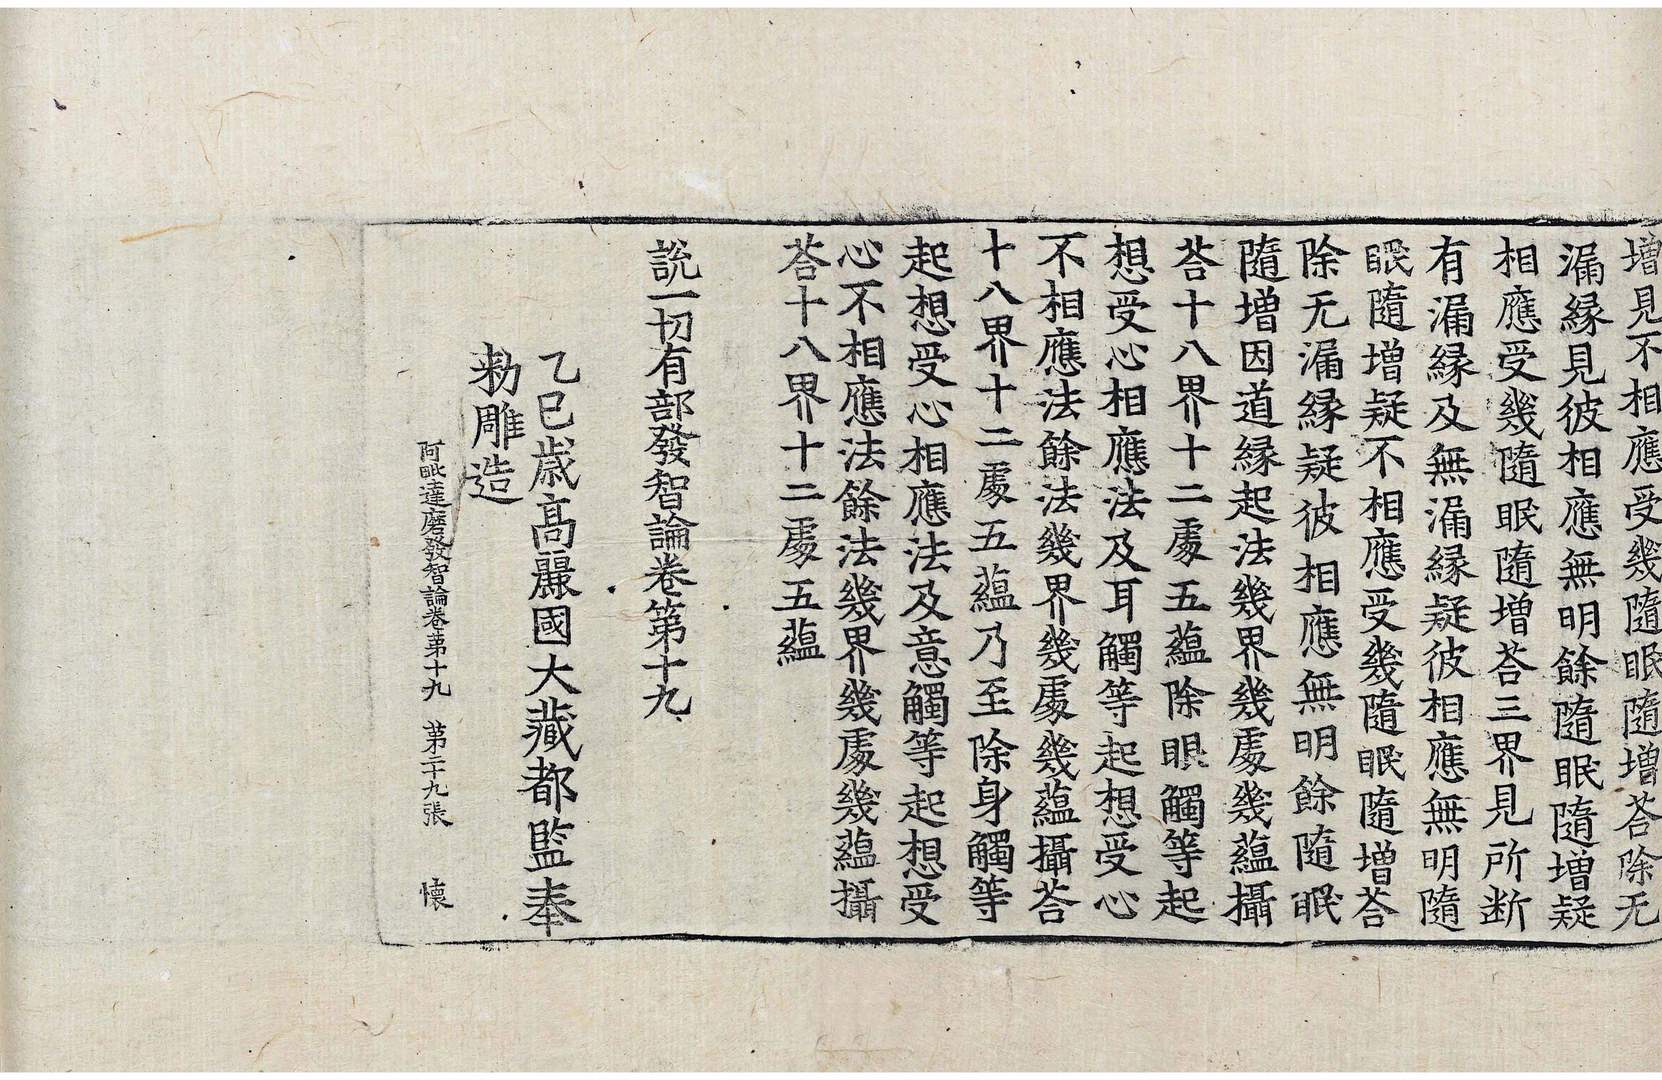 增見不相應受幾隨眠隨增荅除无
漏緣見彼相應無明餘隨眠隨增疑
相應受幾隨眠隨增荅三界見所断
有漏緣及無漏緣疑彼相應無明隨
眠隨增疑不相應受幾隨眠隨增荅
除无漏緣疑彼相應無明餘隨眠
隨增因道緣起法幾界幾處幾蘊攝
荅十八界十二處五蘊除眼觸等起
想受心相應法及耳觸等起想受心
不相應法餘法幾界幾處幾蘊攝荅
十八界十二處五蘊乃至除身觸等
起想受心相應法及意觸等起想受
心不相應法餘法幾界幾處幾蘊攝
荅十八界十二處五蘊
說一切有部發智論卷第十九
乙巳歲高麗國大藏都監奉
勑雕造
阿毗達磨發智論卷苐十九 苐二十九張 懷